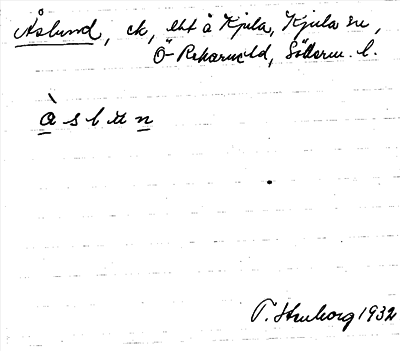 Åslund, ck, lht å Kjula, Kjula sn,
Ö Rekarne hd, Söderm. l.
å s l u n
1932